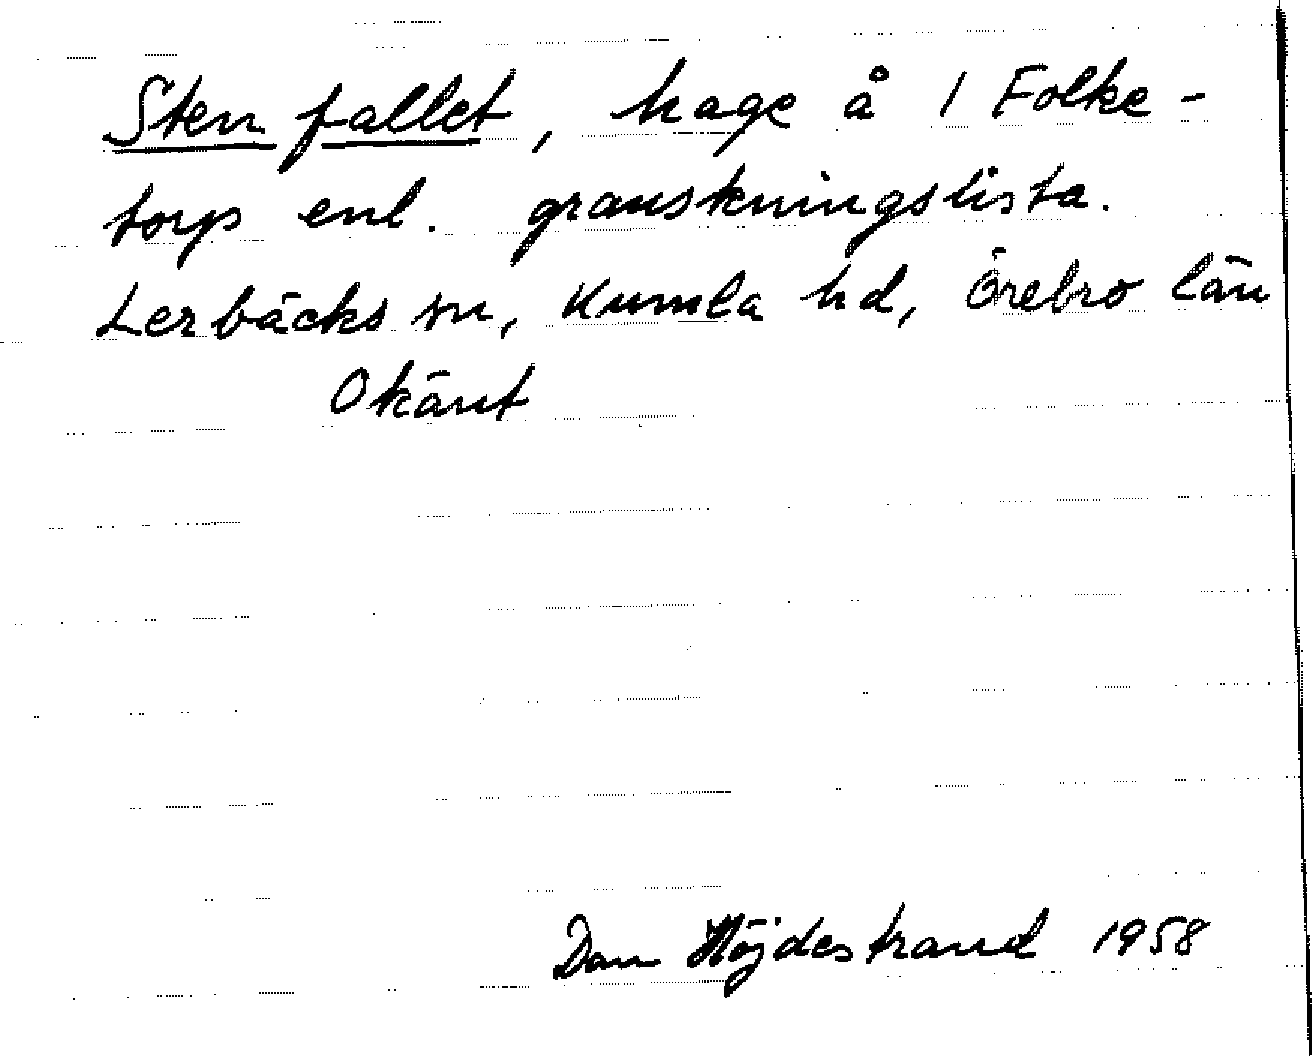 Stenfallet, hage å 1 Folke-
torp enl. granskningslista.
Lerbäcks sn, Kumla hd, Örebro län
Okänt
Dan Höjdestrand 1958